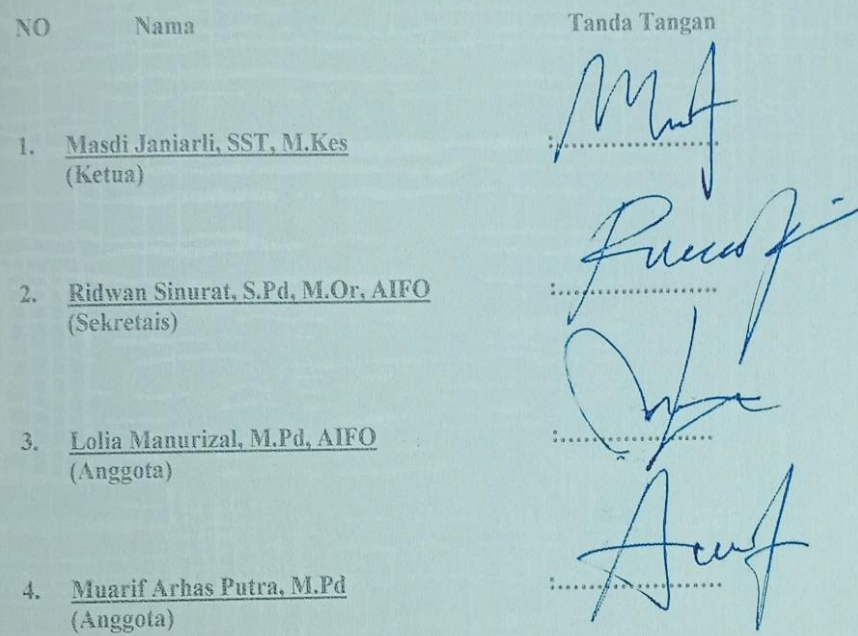 NO Nama Tanda Tangan
1. Masdi Janiarli, SST, M.Kes :....................
(Ketua)
2. Ridwan Sinurat, S.Pd, M.Or, AIFO :....................
(Sekretais)
3. Lolia Manurizal, M.Pd, AIFO :....................
(Anggota)
4. Muarif Arhas Putra, M.Pd :....................
(Anggota)